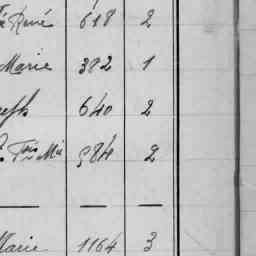 René 618 2
Marie 382 1
eph 640 2
Fois Mie 984 2
— — —
Marie 1164 3